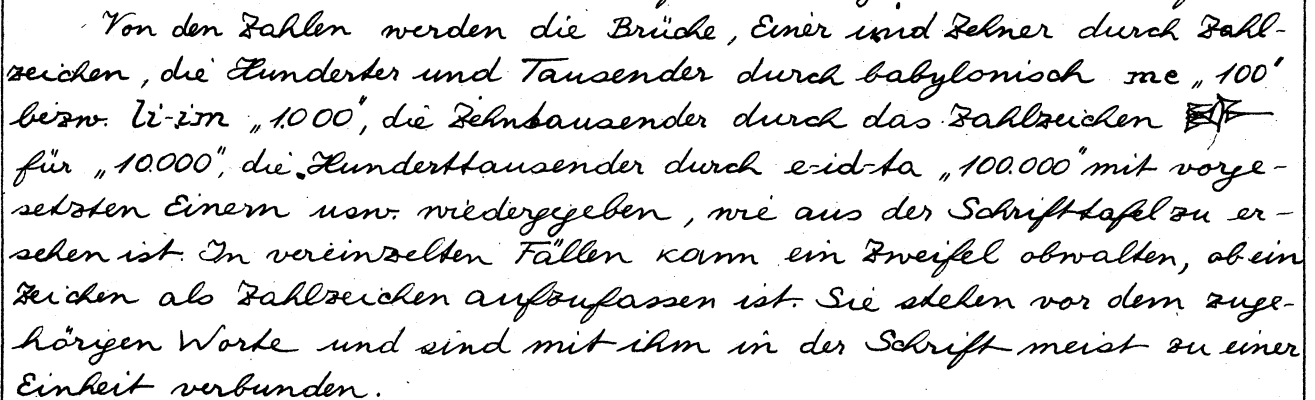 Von den Zahlen werden die Brüche, Einer und Zehner durch Zahl-
zeichen, die Hunderter und Tausender durch babylonisch me „100“
bezw. li-im „1.000“, die Zehntausender durch das Zahlzeichen
für „10.000“, die Hunderttausender durch e-id-ta „100.000“ mit vorge-
setzten Einern usw. wiedergegeben, wie aus der Schrifttafel zu er-
sehen ist. In vereinzelten Fällen kann ein Zweifel obwalten, ob ein
Zeichen als Zahlzeichen aufzufassen ist. Sie stehen vor dem zuge-
hörigen Worte und sind mit ihm in der Schrift meist zu einer
Einheit verbunden.